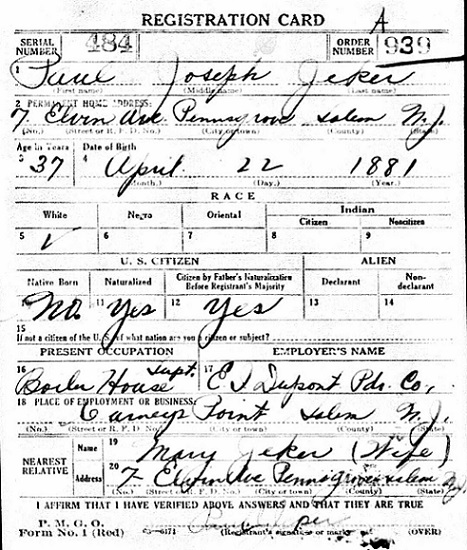 REGISTRATION CARD
A
SERIAL NUMBER 484 ORDER NUMBER 939
1 Paul Joseph Jeker
(First name) (Middle name) (Last name)
2 PERMANENT HOME ADDRESS:
7. Elvin Ave Pennsgrove Salem N.J.
(No.) (Street or R. F. D. No.) (City or town) (County) (State)
Age in Years Date of Birth
3 37 4 April 22 1881
(Month.) (Day.) (Year.)
RACE
White Negro Oriental Indian
Citizen Noncitizen
5 ✓ 6 7 8 9
U. S. CITIZEN ALIEN
Native Born Naturalized Citizen by Father's Naturalization Before Registrant's Majority Declarant Non-declarant
10 No. 11 Yes 12 Yes 13 14
15
If not a citizen of the U. S., of what nation are you a citizen or subject?
PRESENT OCCUPATION EMPLOYER'S NAME
16 Boiler House Supt. 17 E I Dupont Pdr. Co.,
18 PLACE OF EMPLOYMENT OR BUSINESS:
Carneys Point Salem N.J.
(No.) (Street or R. F. D. No.) (City or town) (County) (State)
NEAREST RELATIVE
Name 19 Mary Jeker (Wife)
Address 20 7- Elvin Ave Pennsgrove Salem N.J.
(No.) (Street or R. F. D. No.) (City or town) (County) (State)
I AFFIRM THAT I HAVE VERIFIED ABOVE ANSWERS AND THAT THEY ARE TRUE
P. M. G. O.
Form No. 1 (Red) 3—6171 (Registrant's signature or mark) (OVER)